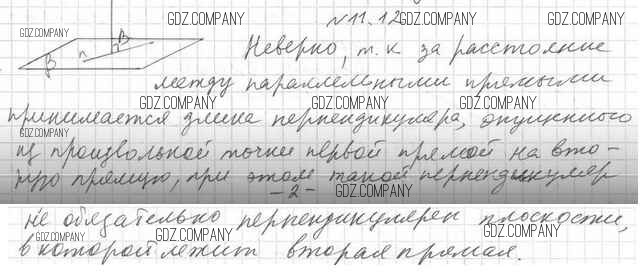 GDZ.COMPANY GDZ.COMPANY GDZ.COMPANY
N 11.12
GDZ.COMPANY
B
n
β
Неверно, т.к за расстояние
GDZ.COMPANY GDZ.COMPANY
между параллельными прямыми
GDZ.COMPANY GDZ.COMPANY GDZ.COMPANY
принимается длина перпендикуляра, опущенного
GDZ.COMPANY
из произвольной точки первой прямой на вто-
рую прямую, при этом такой перпендикуляр
- 2 -
GDZ.COMPANY
не обязательно перпендикулярен плоскости,
GDZ.COMPANY GDZ.COMPANY GDZ.COMPANY
в которой лежит вторая прямая.